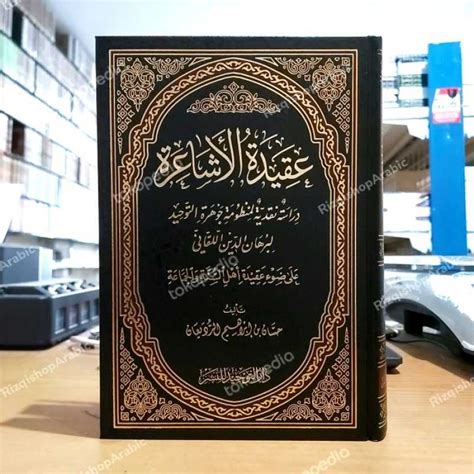 عقيدة الأشاعرة
دراسة نقدية لمنظومة جوهرة التوحيد
لبرهان الدين اللقاني
على ضوء عقيدة أهل السنة والجماعة
تأليف
حسان بن إبراهيم الرديعان
دار التوحيد للنشر
tokopedia
RizqishopArabic